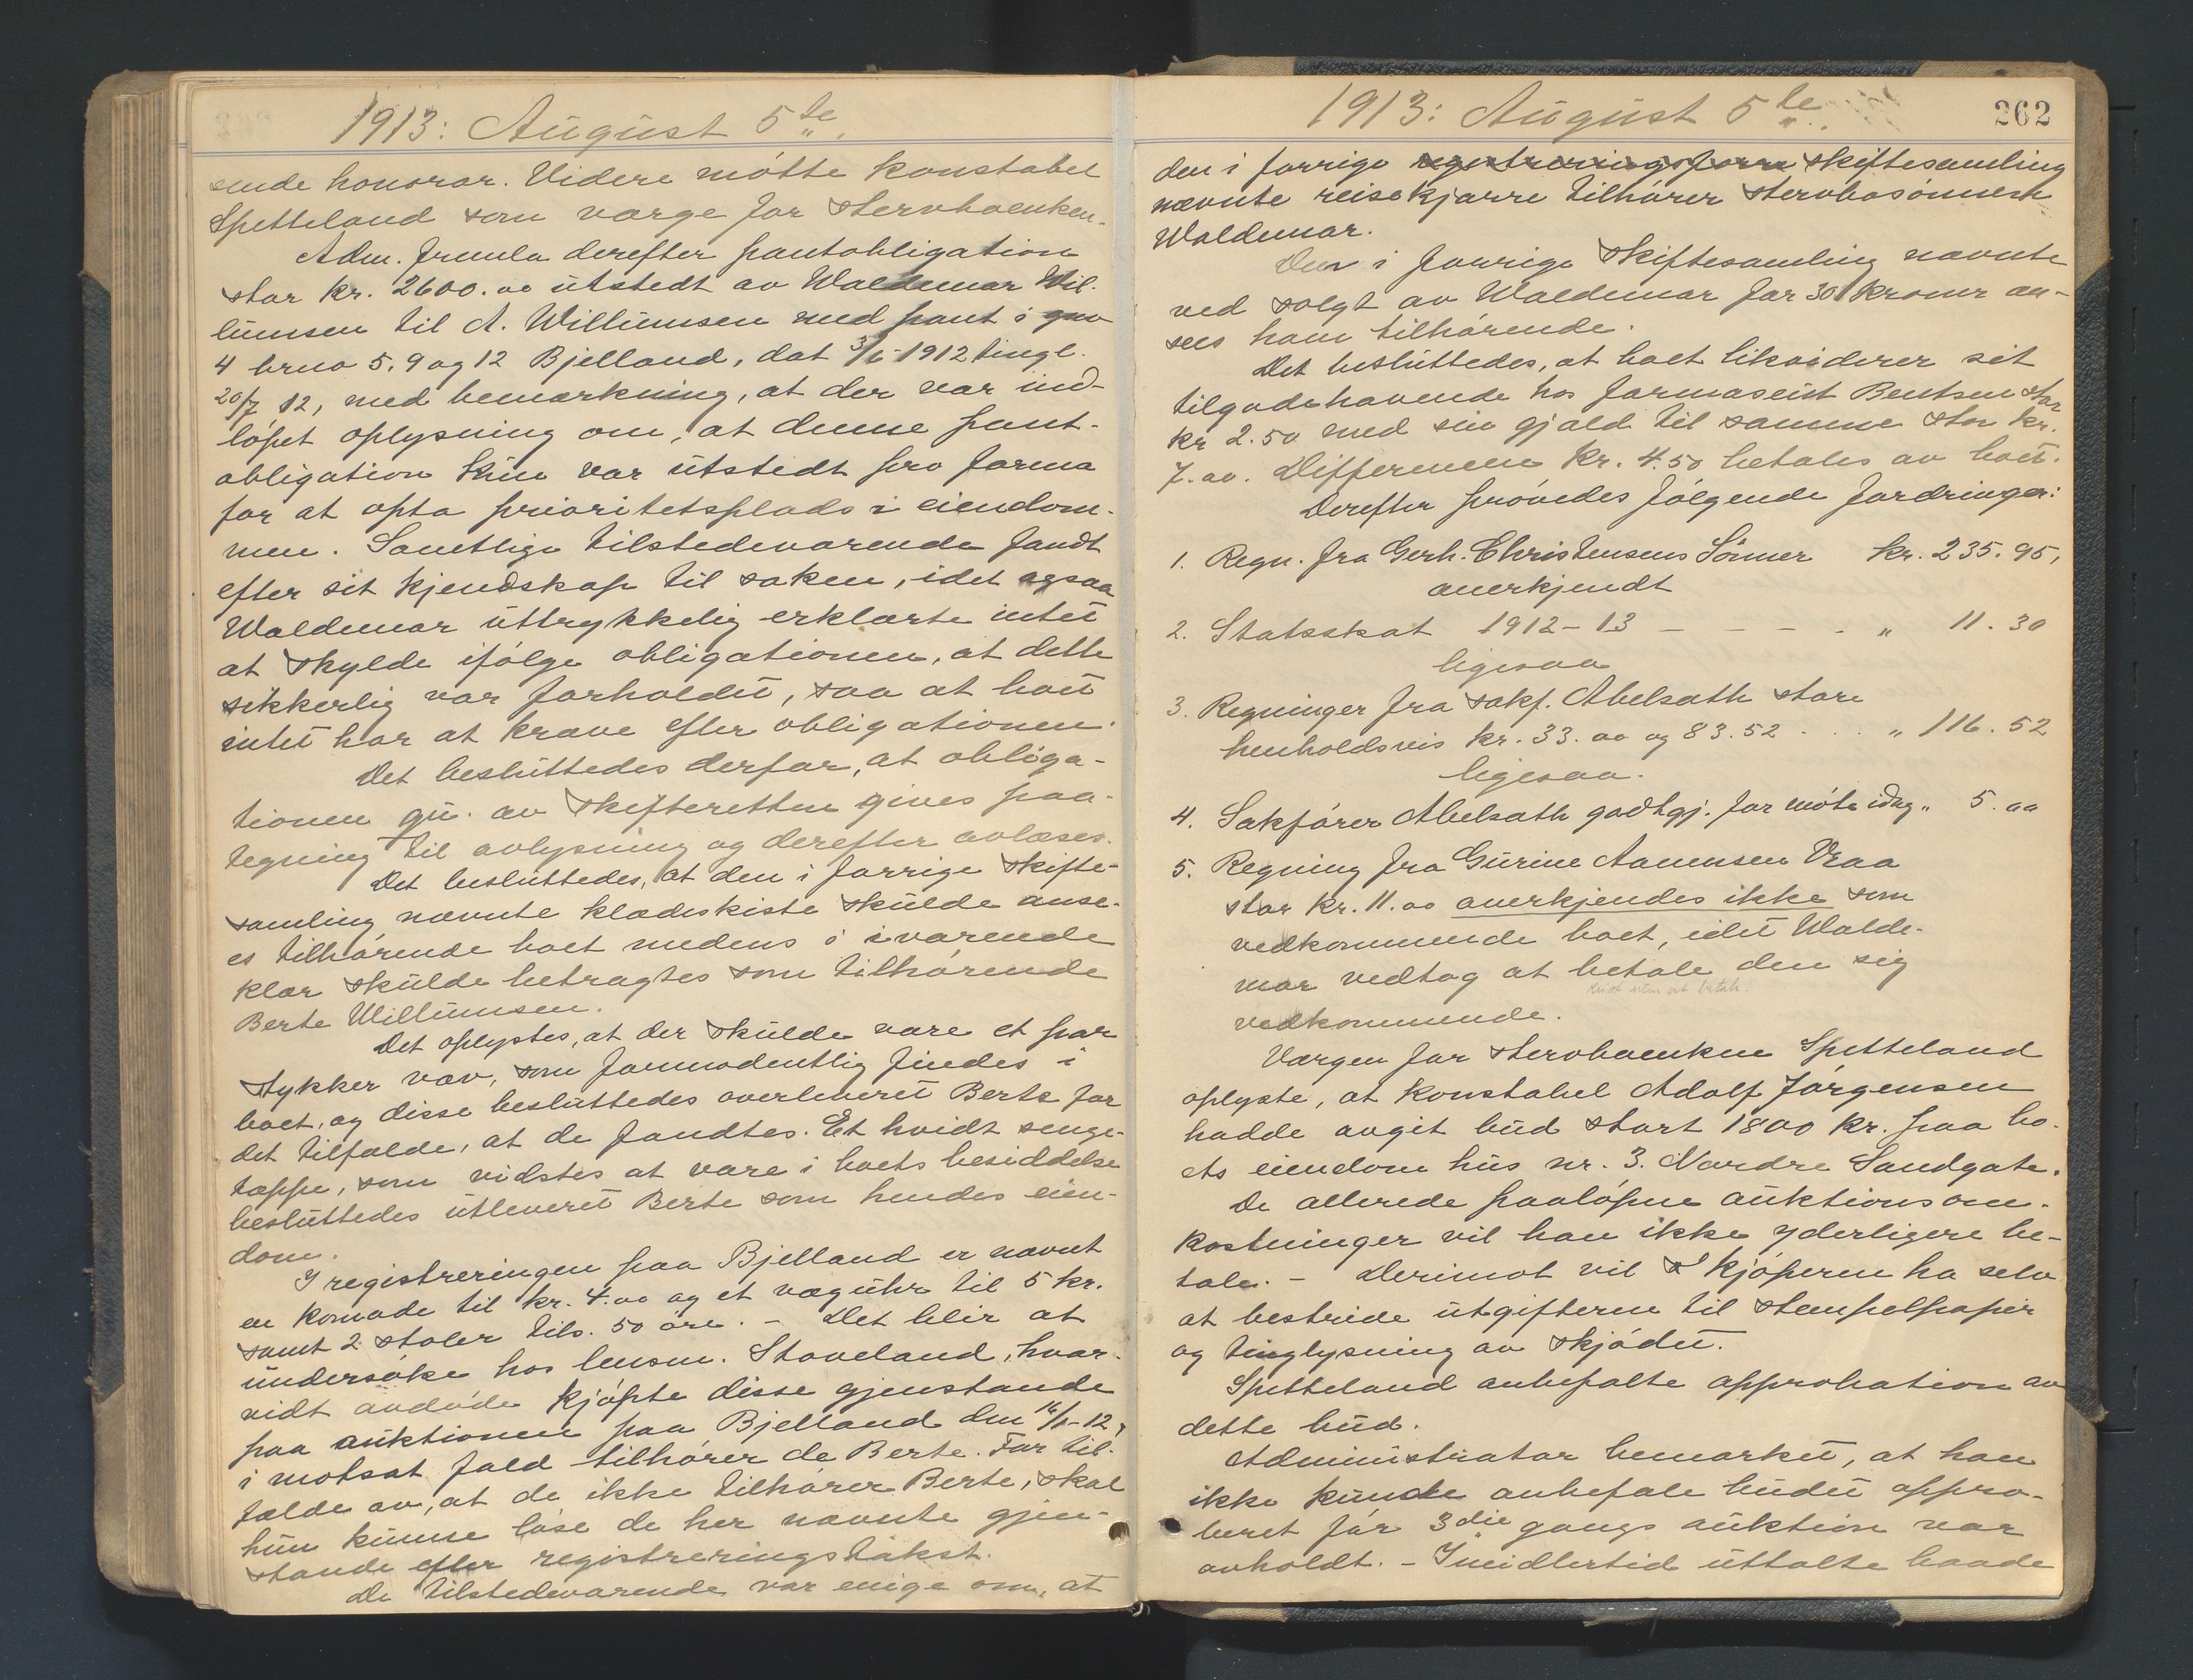 1913: August 5te.
sende honorar. Videre møtte konstabel
Spetteland som værge for stervboenken.
Adm. fremla derefter pantobligation
stor kr. 2600.oo utstedt av Waldemar Wil-
lumsen til A. Willumsen med pant i gno
4 brno 5, 9 og 12 Bjelland, dat 3/6-1912 tingl.
20/7 12, med bemærkning, at der var ind-
løpet oplysning om, at denne pant-
obligation kun var utstedt pro forma
for at opta prioritetsplads i eiendom-
men. Samtlige tilstedeværende fandt
efter sit kjendskap til saken, idet ogsaa
Waldemar uttrykkelig erklærte intet
at skylde ifølge obligationen, at dette
sikkerlig var forholdet, saa at boet
intet har at kræve efter obligationen.
Det besluttedes derfor, at obliga-
tionen qu. av skifteretten gives paa-
tegning til avlysning og derefter avlæses.
Det besluttedes, at den i forrige skifte-
samling nævnte klædeskiste skulde anse-
es tilhørende boet medens i iværende
klær skulde betragtes som tilhørende
Berte Willumsen.
Det oplystes, at der skulde være et par
stykker væv, som formodentlig findes i
boet, og disse besluttedes overleveret Berte for
det tilfælde, at de fandtes. Et hvidt senge-
tæppe, som vidstes at være i boets besiddelse
besluttedes utleveret Berte som hendes eien-
dom.
I registreringen paa Bjelland er nævnt
en komode til kr. 4.oo og et væguhr til 5 kr.
samt 2 stoler tils. 50 øre. - Det blir at
undersøke hos lensm. Stoveland, hvor-
vidt avdøde kjøpte disse gjenstande
paa auktionen paa Bjelland den 16/1-12,
i motsat fald tilhører de Berte. For til-
fælde av, at de ikke tilhører Berte, skal
hun kunne løse de her nævnte gjen-
stande efter registreringstakst.
De tilstedeværende var enige om, at
1913: August 5te.
262
den i forrige registreringsforre skiftesamling
nævnte reisekjærre tilhører stervbosønnen
Waldemar.
Den i forrige skiftesamling nævnte
ved solgt av Waldemar for 30 kroner an-
sees ham tilhørende.
Det besluttedes, at boet likviderer sit
tilgodehavende hos farmaseut Bentsen stor
kr 2.50 med sin gjæld til samme stor kr.
7.oo. Differencen kr. 4.50 betales av boet.
Derefter prøvedes følgende fordringer:
1. Regn. fra Gerh. Christensens Sønner kr. 235.95,
anerkjendt
2. Statsskat 1912-13 - - - - " 11.30
ligesaa
3. Regninger fra sakf. Abelsæth store
henholdsvis kr. 33.oo og 83.52 . . . " 116.52
ligesaa.
4. Sakfører Abelsæth godtgj. for møte idag " 5.oo
5. Regning fra Gurine Aanensen Vraa
stor kr. 11.oo anerkjendes ikke som
vedkommende boet, idet Walde-
mar vedtog at betale den sig
vedkommende.
Værgen for stervboenken Spetteland
oplyste, at konstabel Adolf Jørgensen
hadde avgit bud stort 1800 kr. paa bo-
ets eiendom hus nr. 3. Nordre Sandgate.
De allerede paaløpne auktionsom-
kostninger vil han ikke yderligere be-
tale. - Derimot vil kjøperen ha selv
at bestride utgifterne til stempelpapir
og tinglysning av skjødet.
Spetteland anbefalte approbation av
dette bud.
Administrator bemærket, at han
ikke kunde anbefale budet appro-
beret før 3die gangs auktion var
avholdt. - Imidlertid uttalte baade